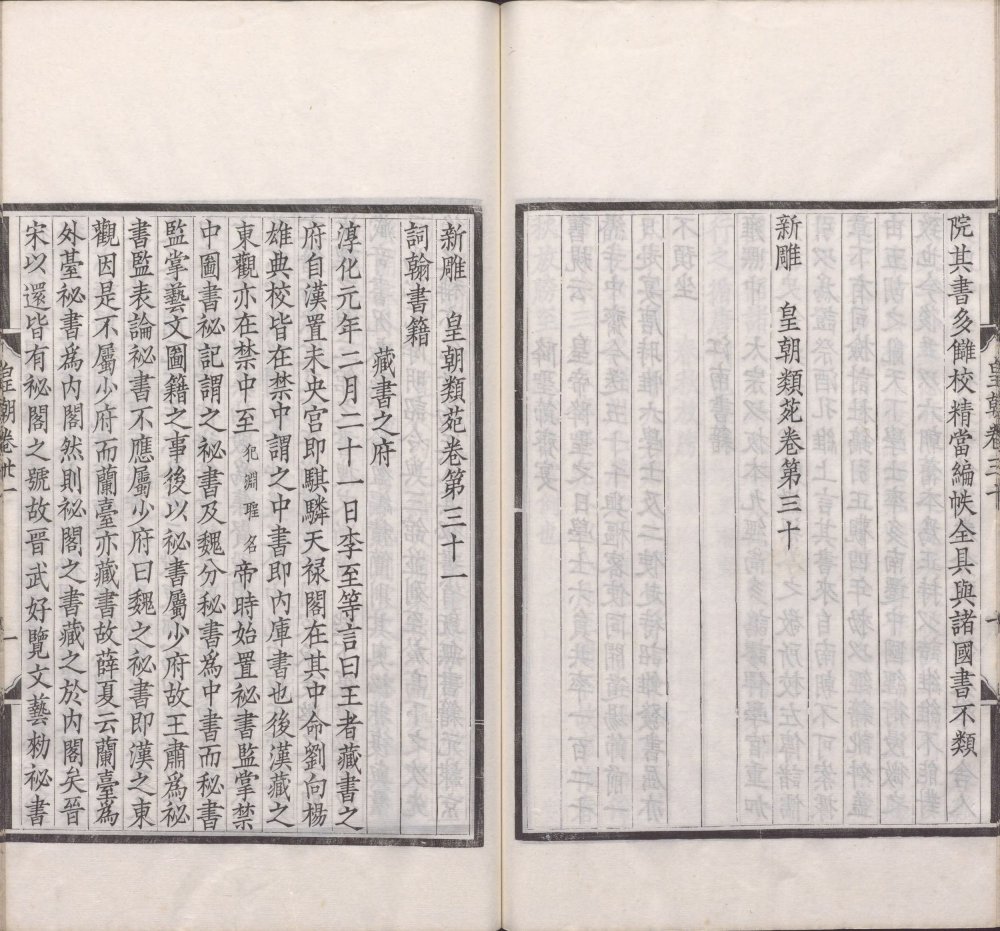 院其書多讎校精當編帙全具與諸國書不類
新雕　皇朝類苑卷第三十
新雕　皇朝類苑卷第三十一
詞翰書籍
藏書之府
淳化元年二月二十一日李至等言曰王者藏書之
府自漢置未央宮即騏驎天禄閣在其中命劉向楊
雄典校皆在禁中謂之中書即內庫書也後漢藏之
東觀亦在禁中至犯淵聖名帝時始置祕書監掌禁
中圖書祕記謂之祕書及魏分秘書爲中書而秘書
監掌藝文圖籍之事後以祕書屬少府故王肅爲祕
書監表論祕書不應屬少府曰魏之祕書即漢之東
觀因是不屬少府而蘭臺亦藏書故薛夏云蘭臺爲
外臺祕書爲内閣然則祕閣之書藏之於内閣矣晉
宋以還皆有祕閣之號故晉武好覽文藝勑祕書
皇朝卷卅一
一